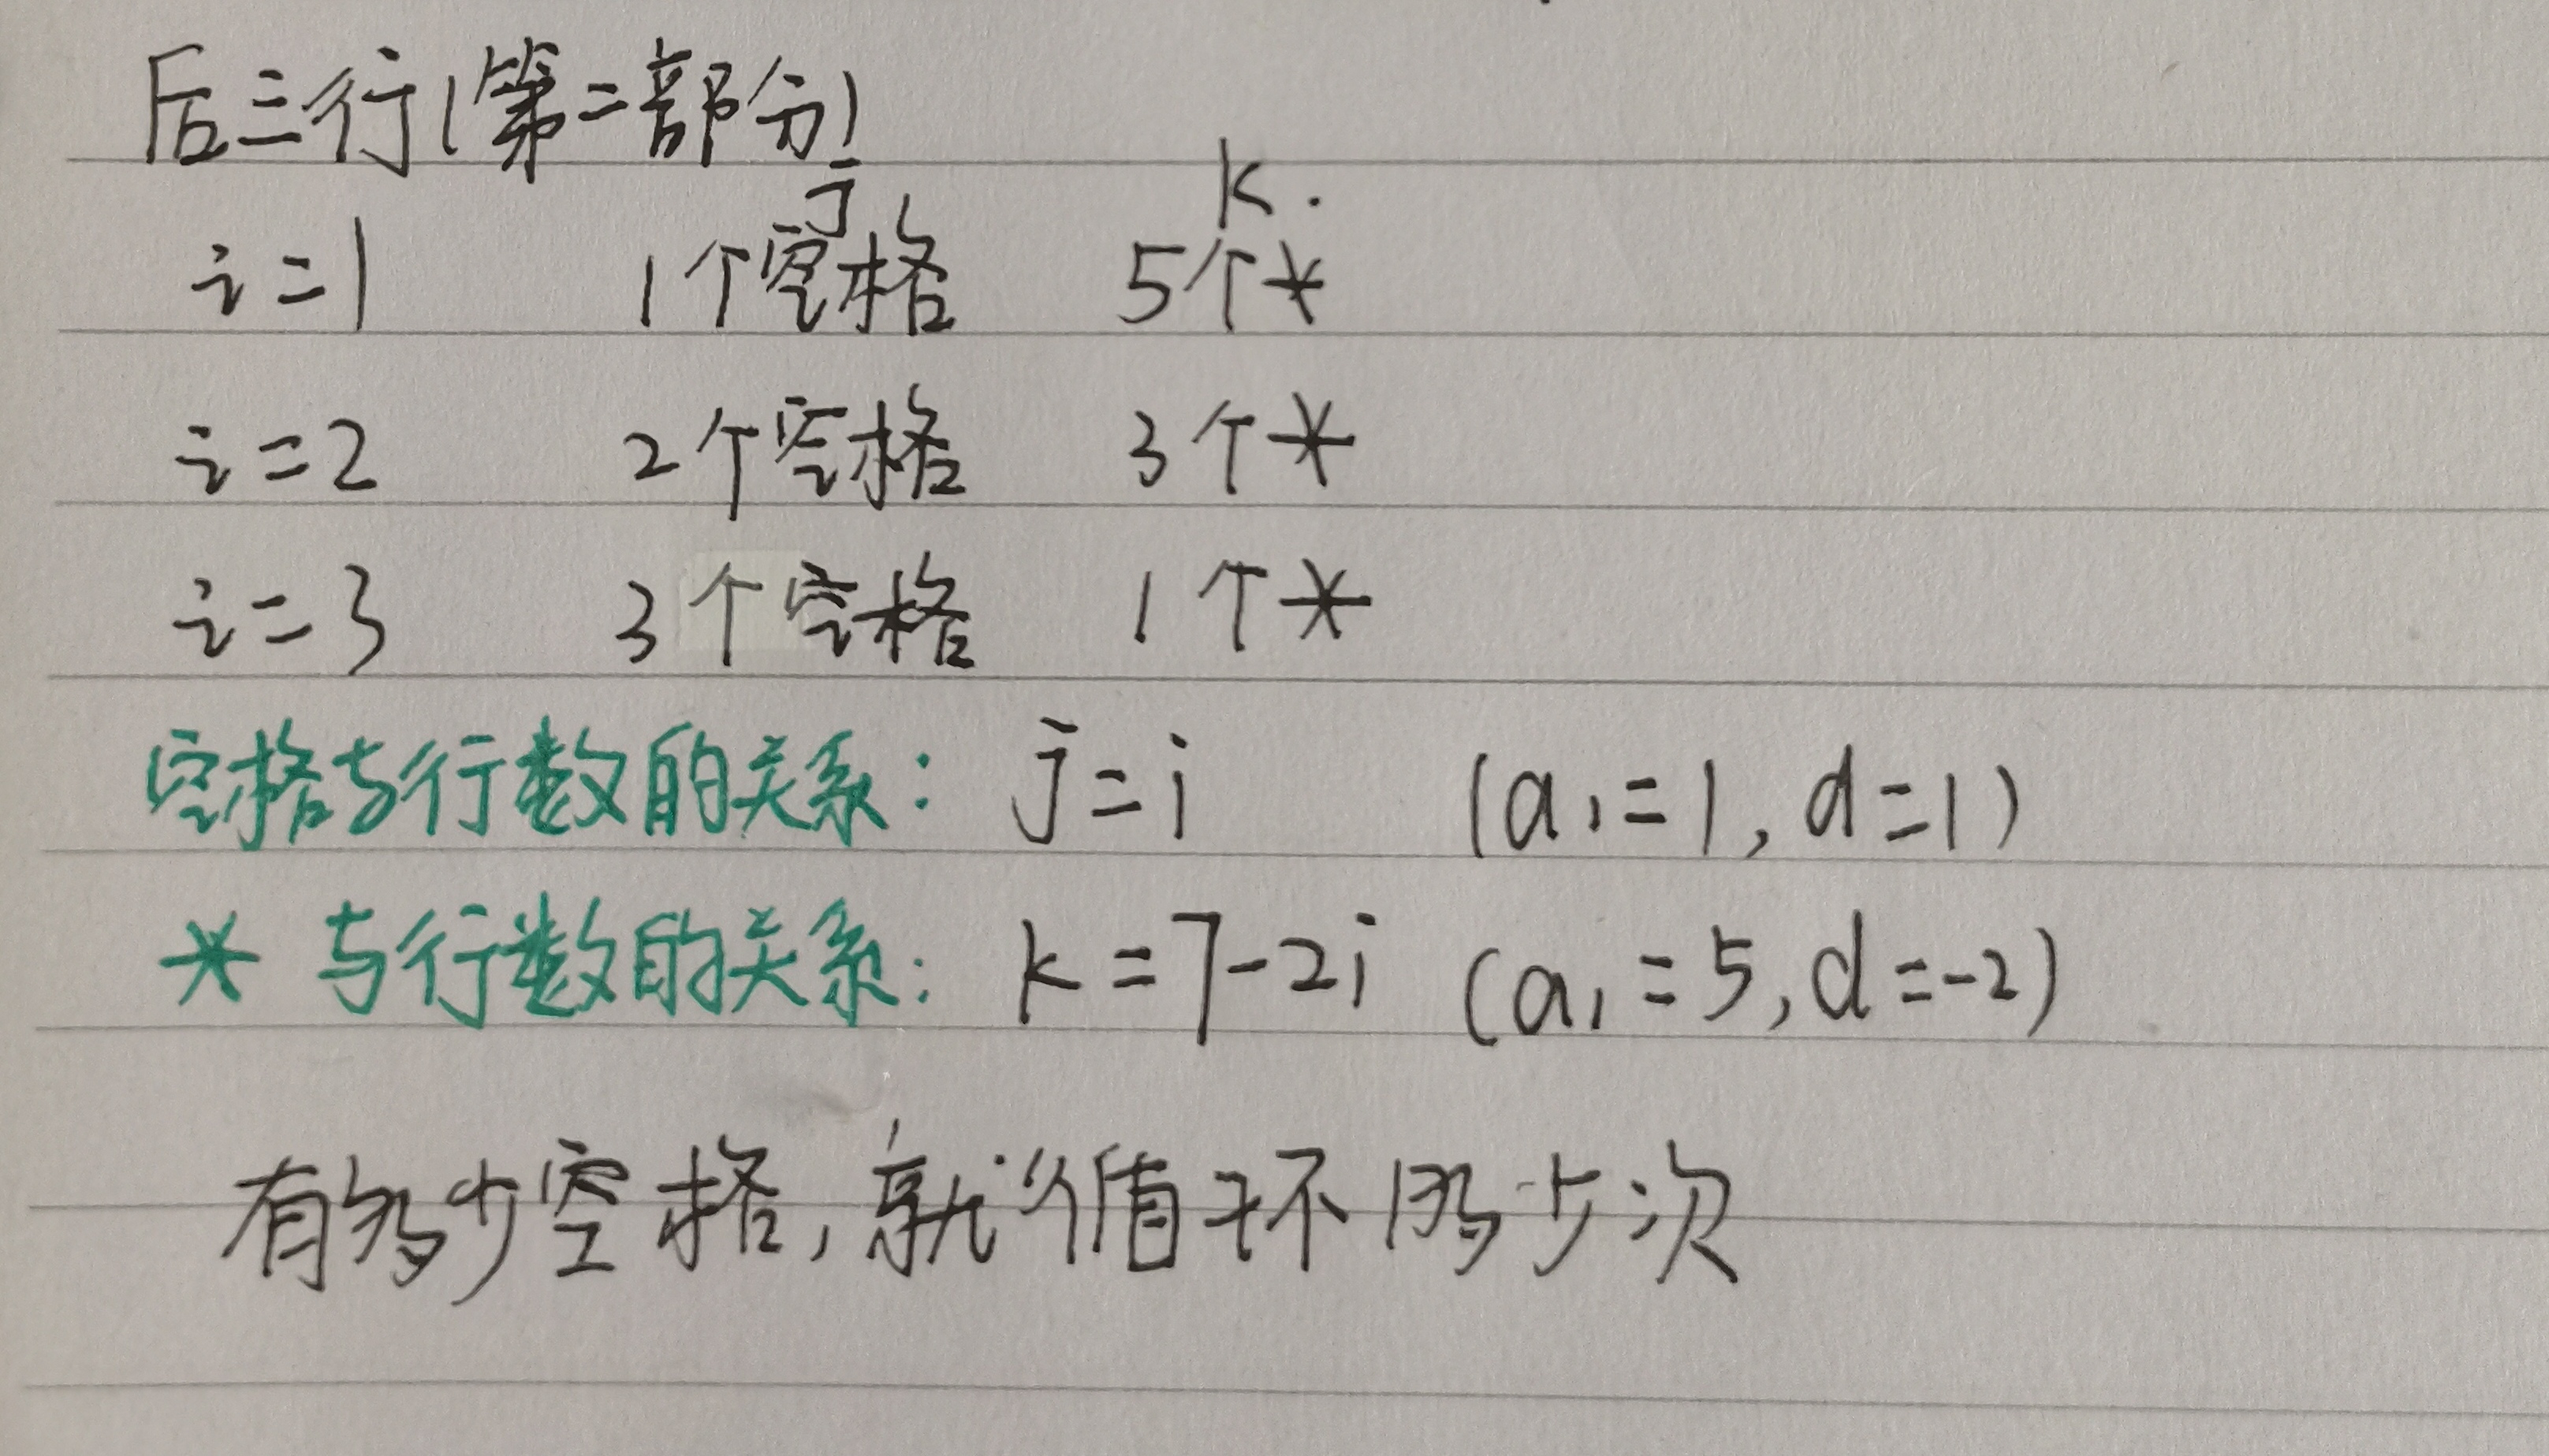 后三行(第二部分)
j k.
i=1 1个空格 5个*
i=2 2个空格 3个*
i=3 3个空格 1个*
空格与行数的关系: j=i (a₁=1, d=1)
* 与行数的关系: k=7-2i (a₁=5, d=-2)
有多少空格,就循环多少次